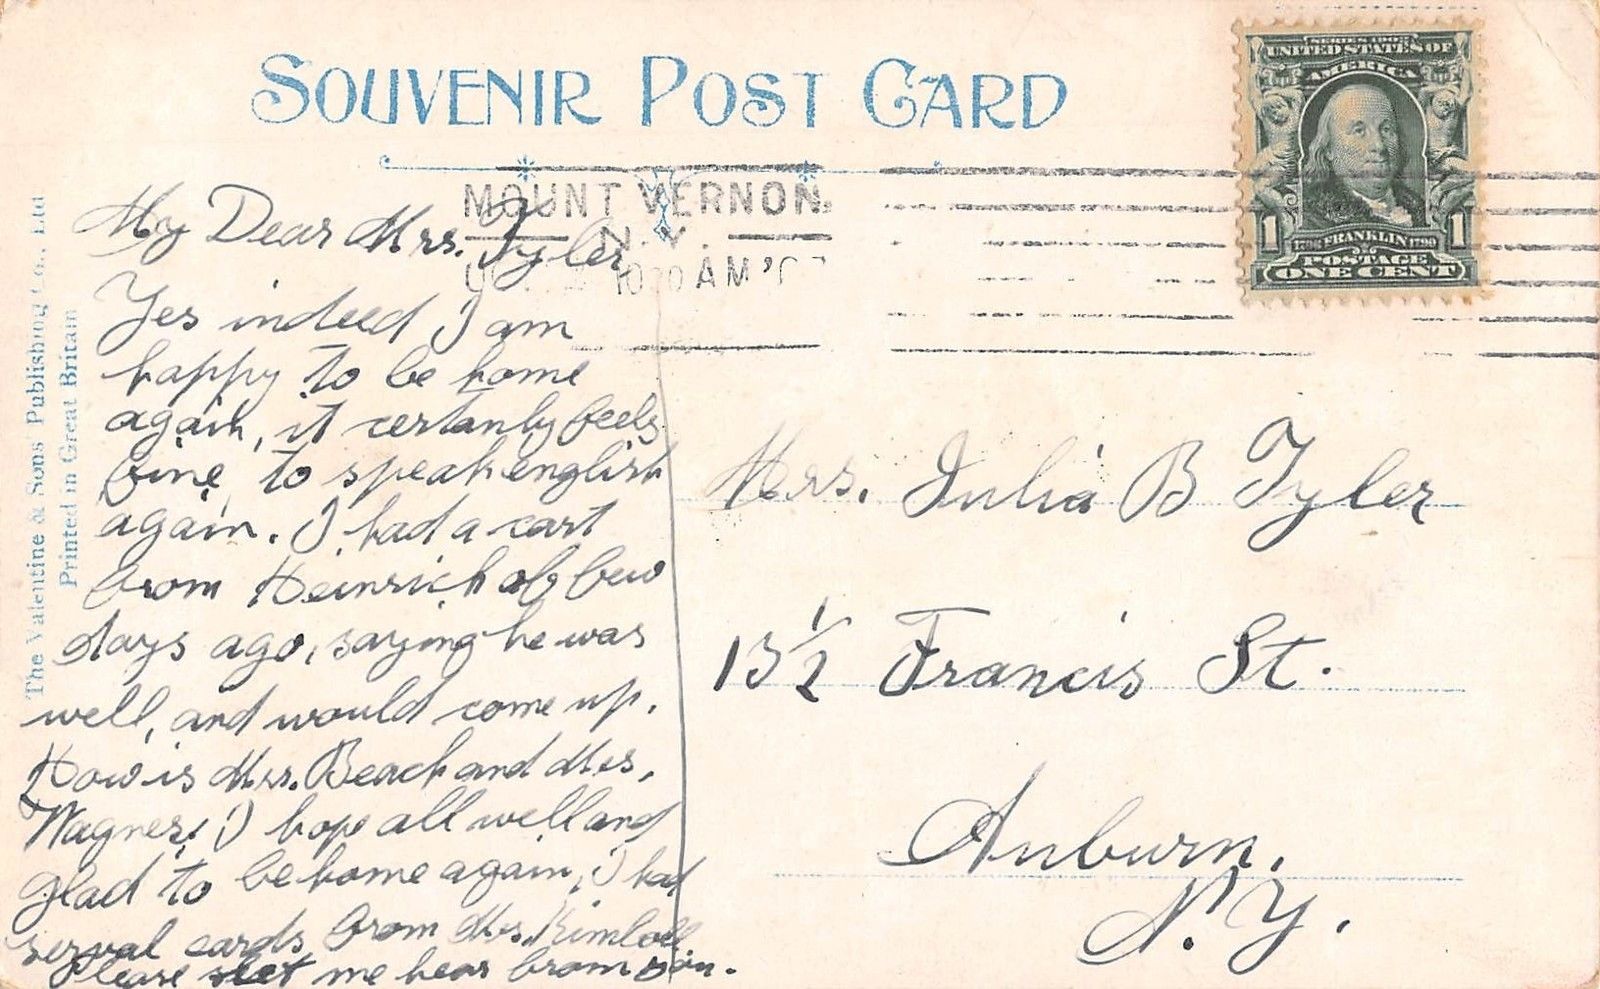 SOUVENIR POST CARD
SERIES 1902
UNITED STATES OF
AMERICA
1 1706 FRANKLIN 1790 1
POSTAGE
ONE CENT
MOUNT VERNON
N.Y.
10 30 AM '0
The Valentine & Sons' Publishing Co., Ltd
Printed in Great Britain
My Dear Mrs. Tyler
Yes indeed I am
happy to be home
again, it certanly feels
fine to speak english
again. I had a cart
from Heinrich ob few
days ago, saying he was
well, and would come up.
How is Mrs. Beach and Mrs.
Wagner, I hope all well and
glad to be home again, I had
serval cards from Mrs. Kimball
Please let me hear from you.
Mrs. Julia B Tyler
13 1/2 Francis St.
Auburn,
N.Y.